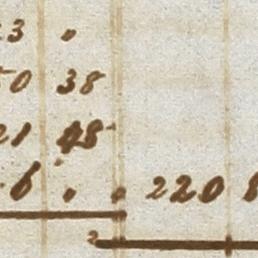 23 .
50 38
21 48
6 . . 220 8
2